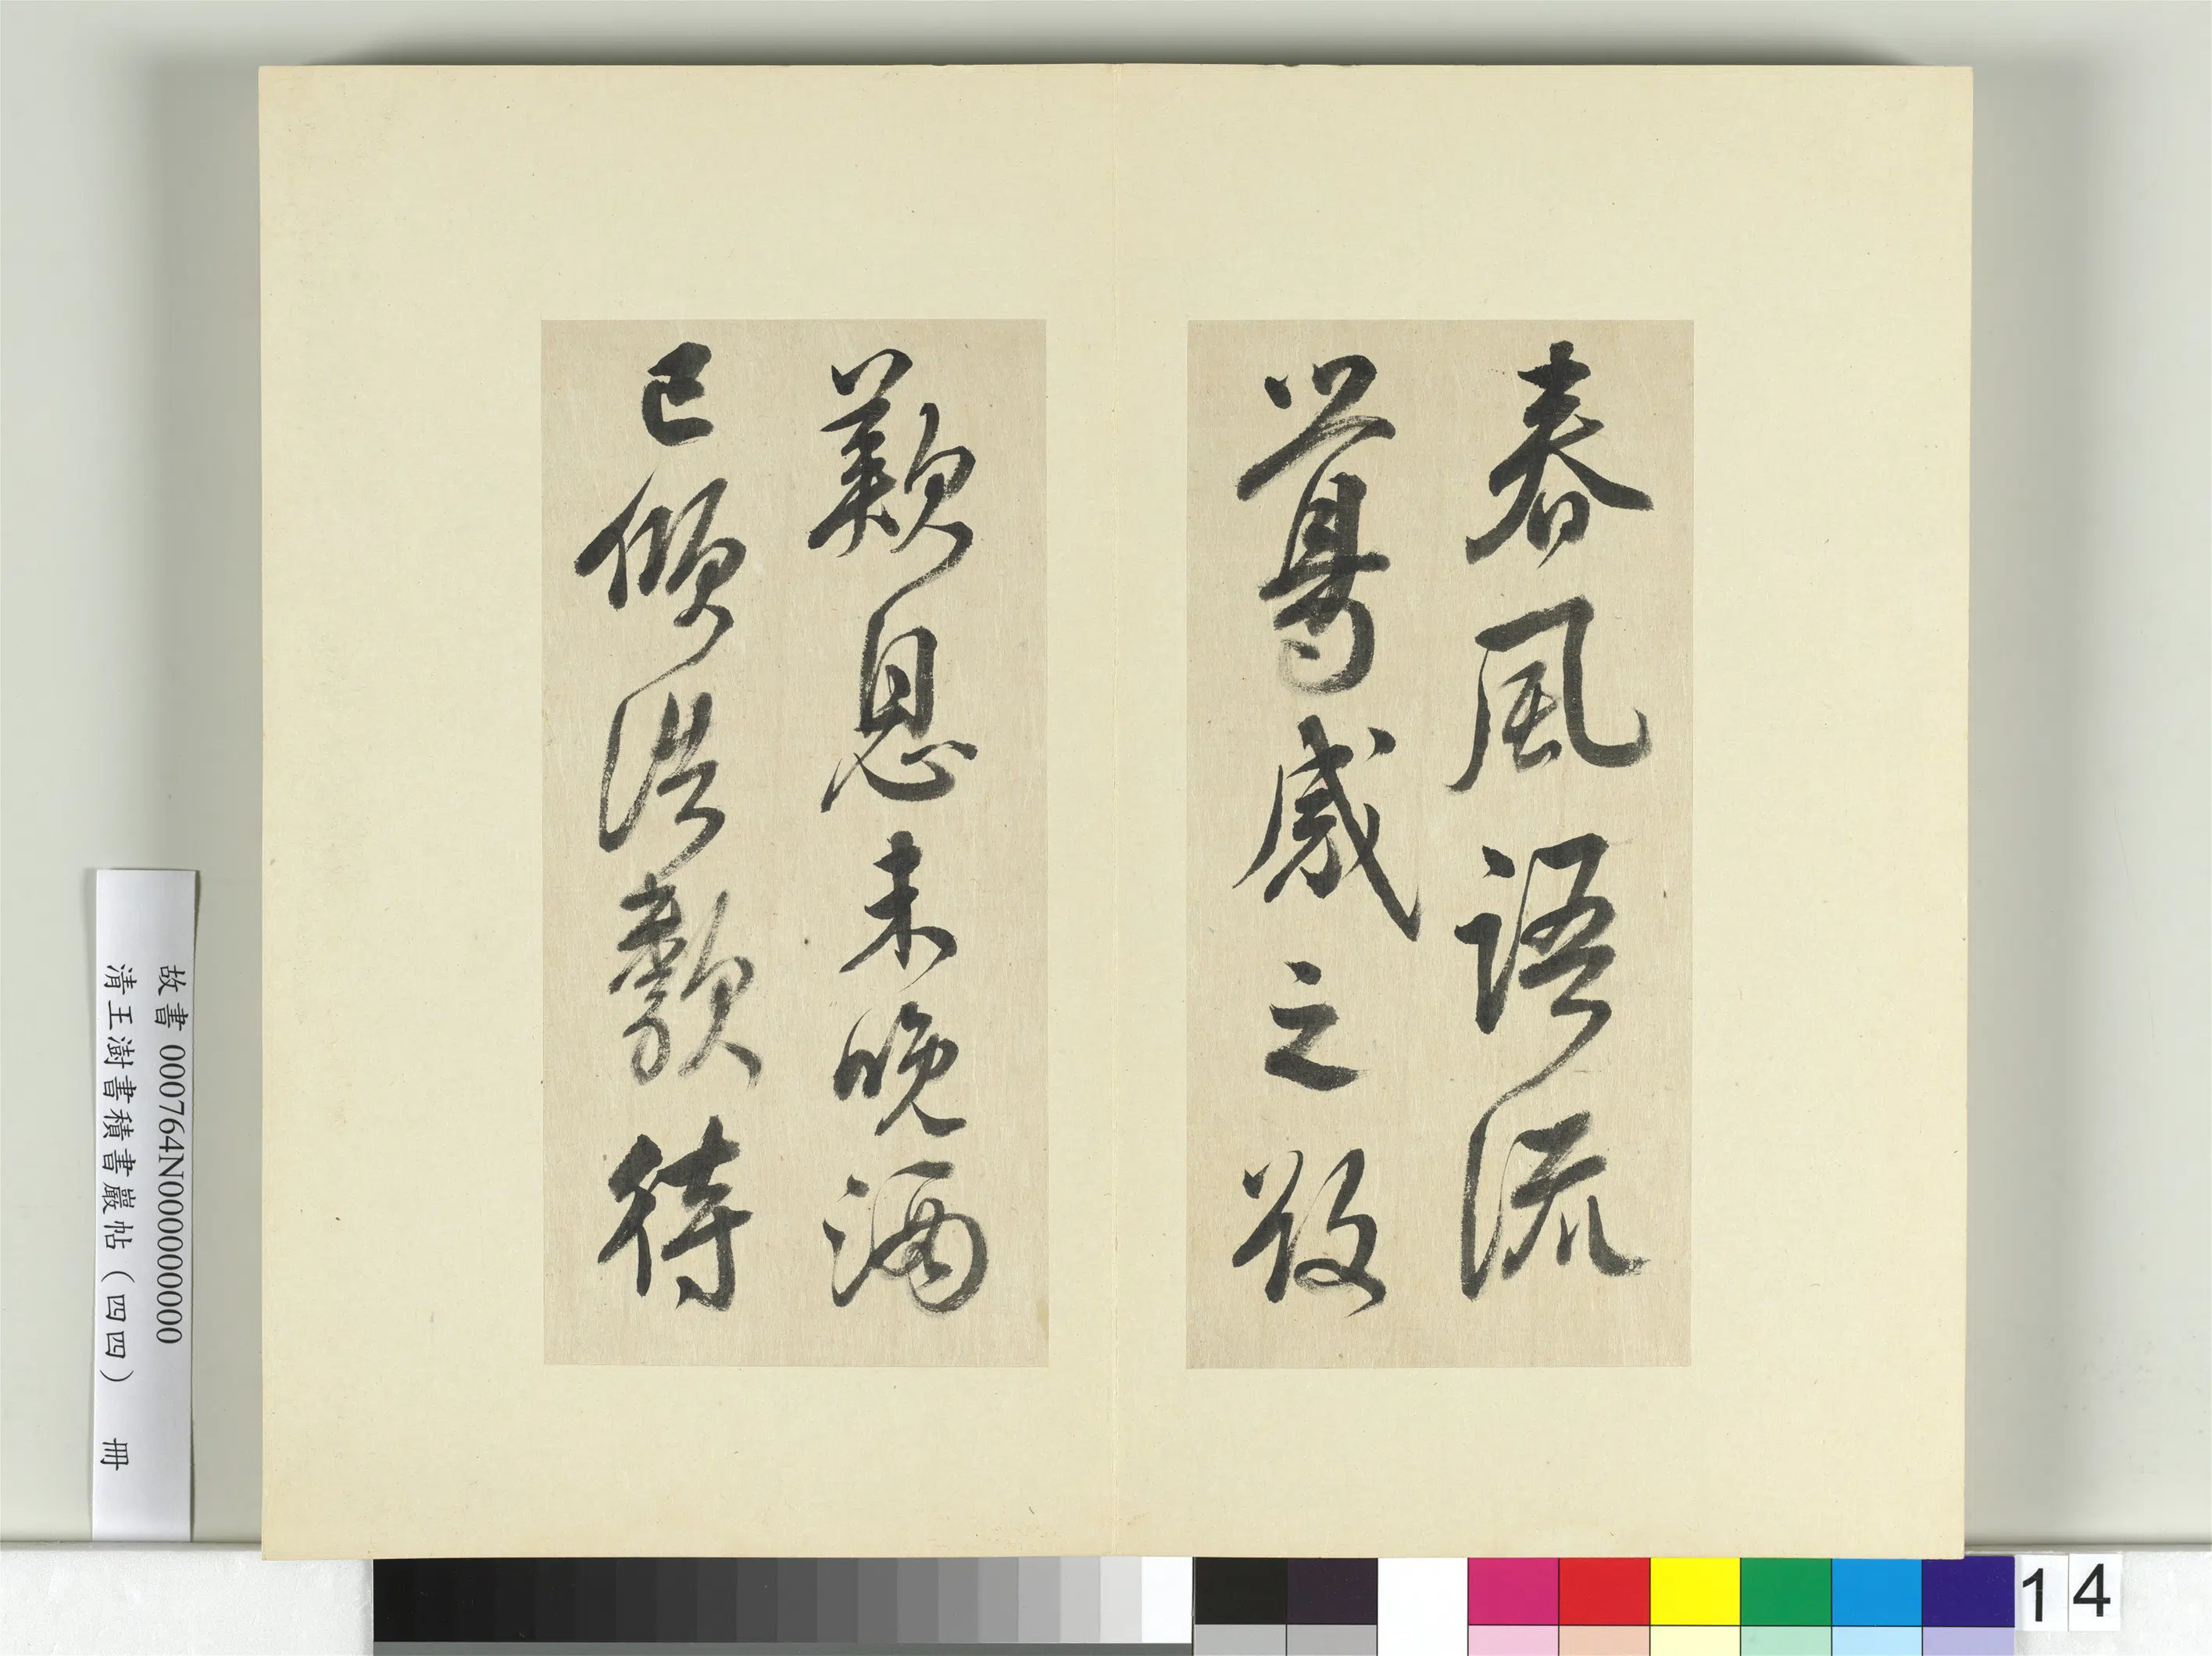 春風語流
鶯感之欲
歎息未晚酒
已傾浩歌待
故書 000764N000000000
清王澍書積書巖帖(四四) 冊
14